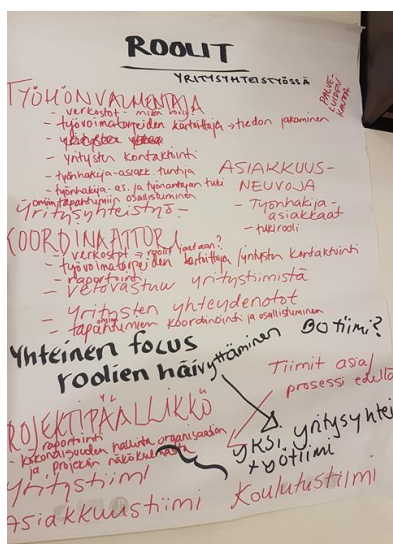 ROOLIT
YRITYSYHTEISTYÖSSÄ
PALVE-
LUIDEN
KAUTTA
TYÖHÖNVALMENTAJA
- verkostot -
- työvoimatarpeiden kartoittaja → tiedon jakaminen
- yritysten kontaktointi
- työnhakija-asiakk. tuntija
- työnhakija-as. ja työnantajan tuki
omiin tapahtumiin osallistuminen
ASIAKKUUS-
NEUVOJA
- Työnhakija-
asiakkaat
- tukirooli
Yritysyhteistyö-
KOORDINAATTORI
- verkostot → roolit
- työvoimatarpeiden kartoittaja / yritysten kontaktointi
- raportointi
- vetovastuu yritystiimistä
- yritysten yhteydenotot
- omien tapahtumien koordinointi ja osallistuminen
Yhteinen focus
roolien häivyttäminen
BO tiimi?
Tiimit asia/
prosessi edellä
PROJEKTIPÄÄLLIKKÖ
- raportointi
- kokonaisuuden hallinta organisaation
ja projektin näkökulmasta
yksi yritysyhtei
styötiimi
Yritystiimi
Asiakkuustiimi
Koulutustiimi